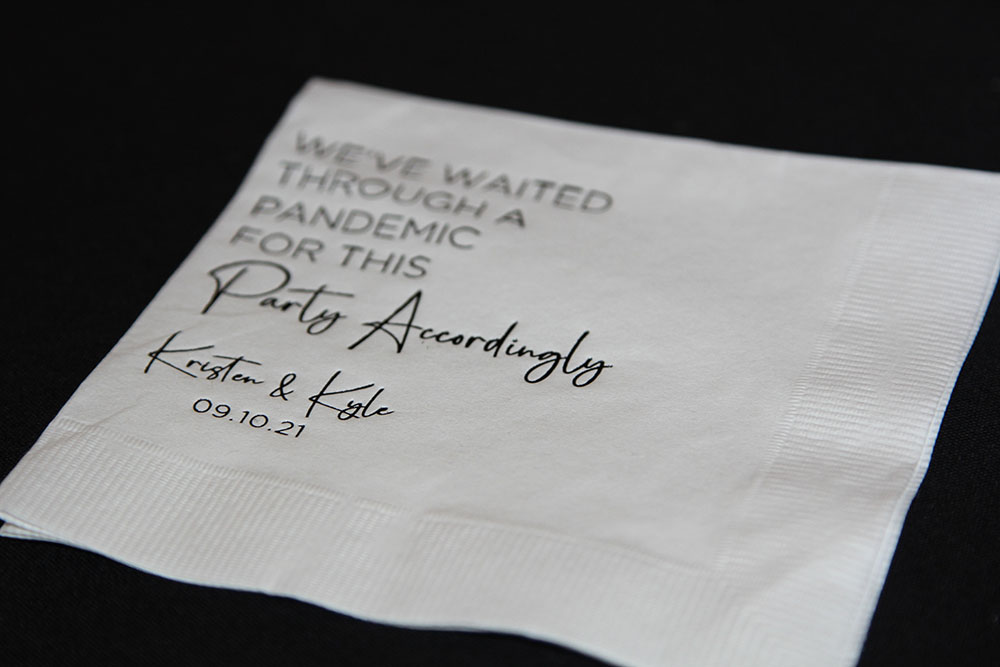 WE'VE WAITED
THROUGH A
PANDEMIC
FOR THIS
Party Accordingly
Kristen & Kyle
09.10.21